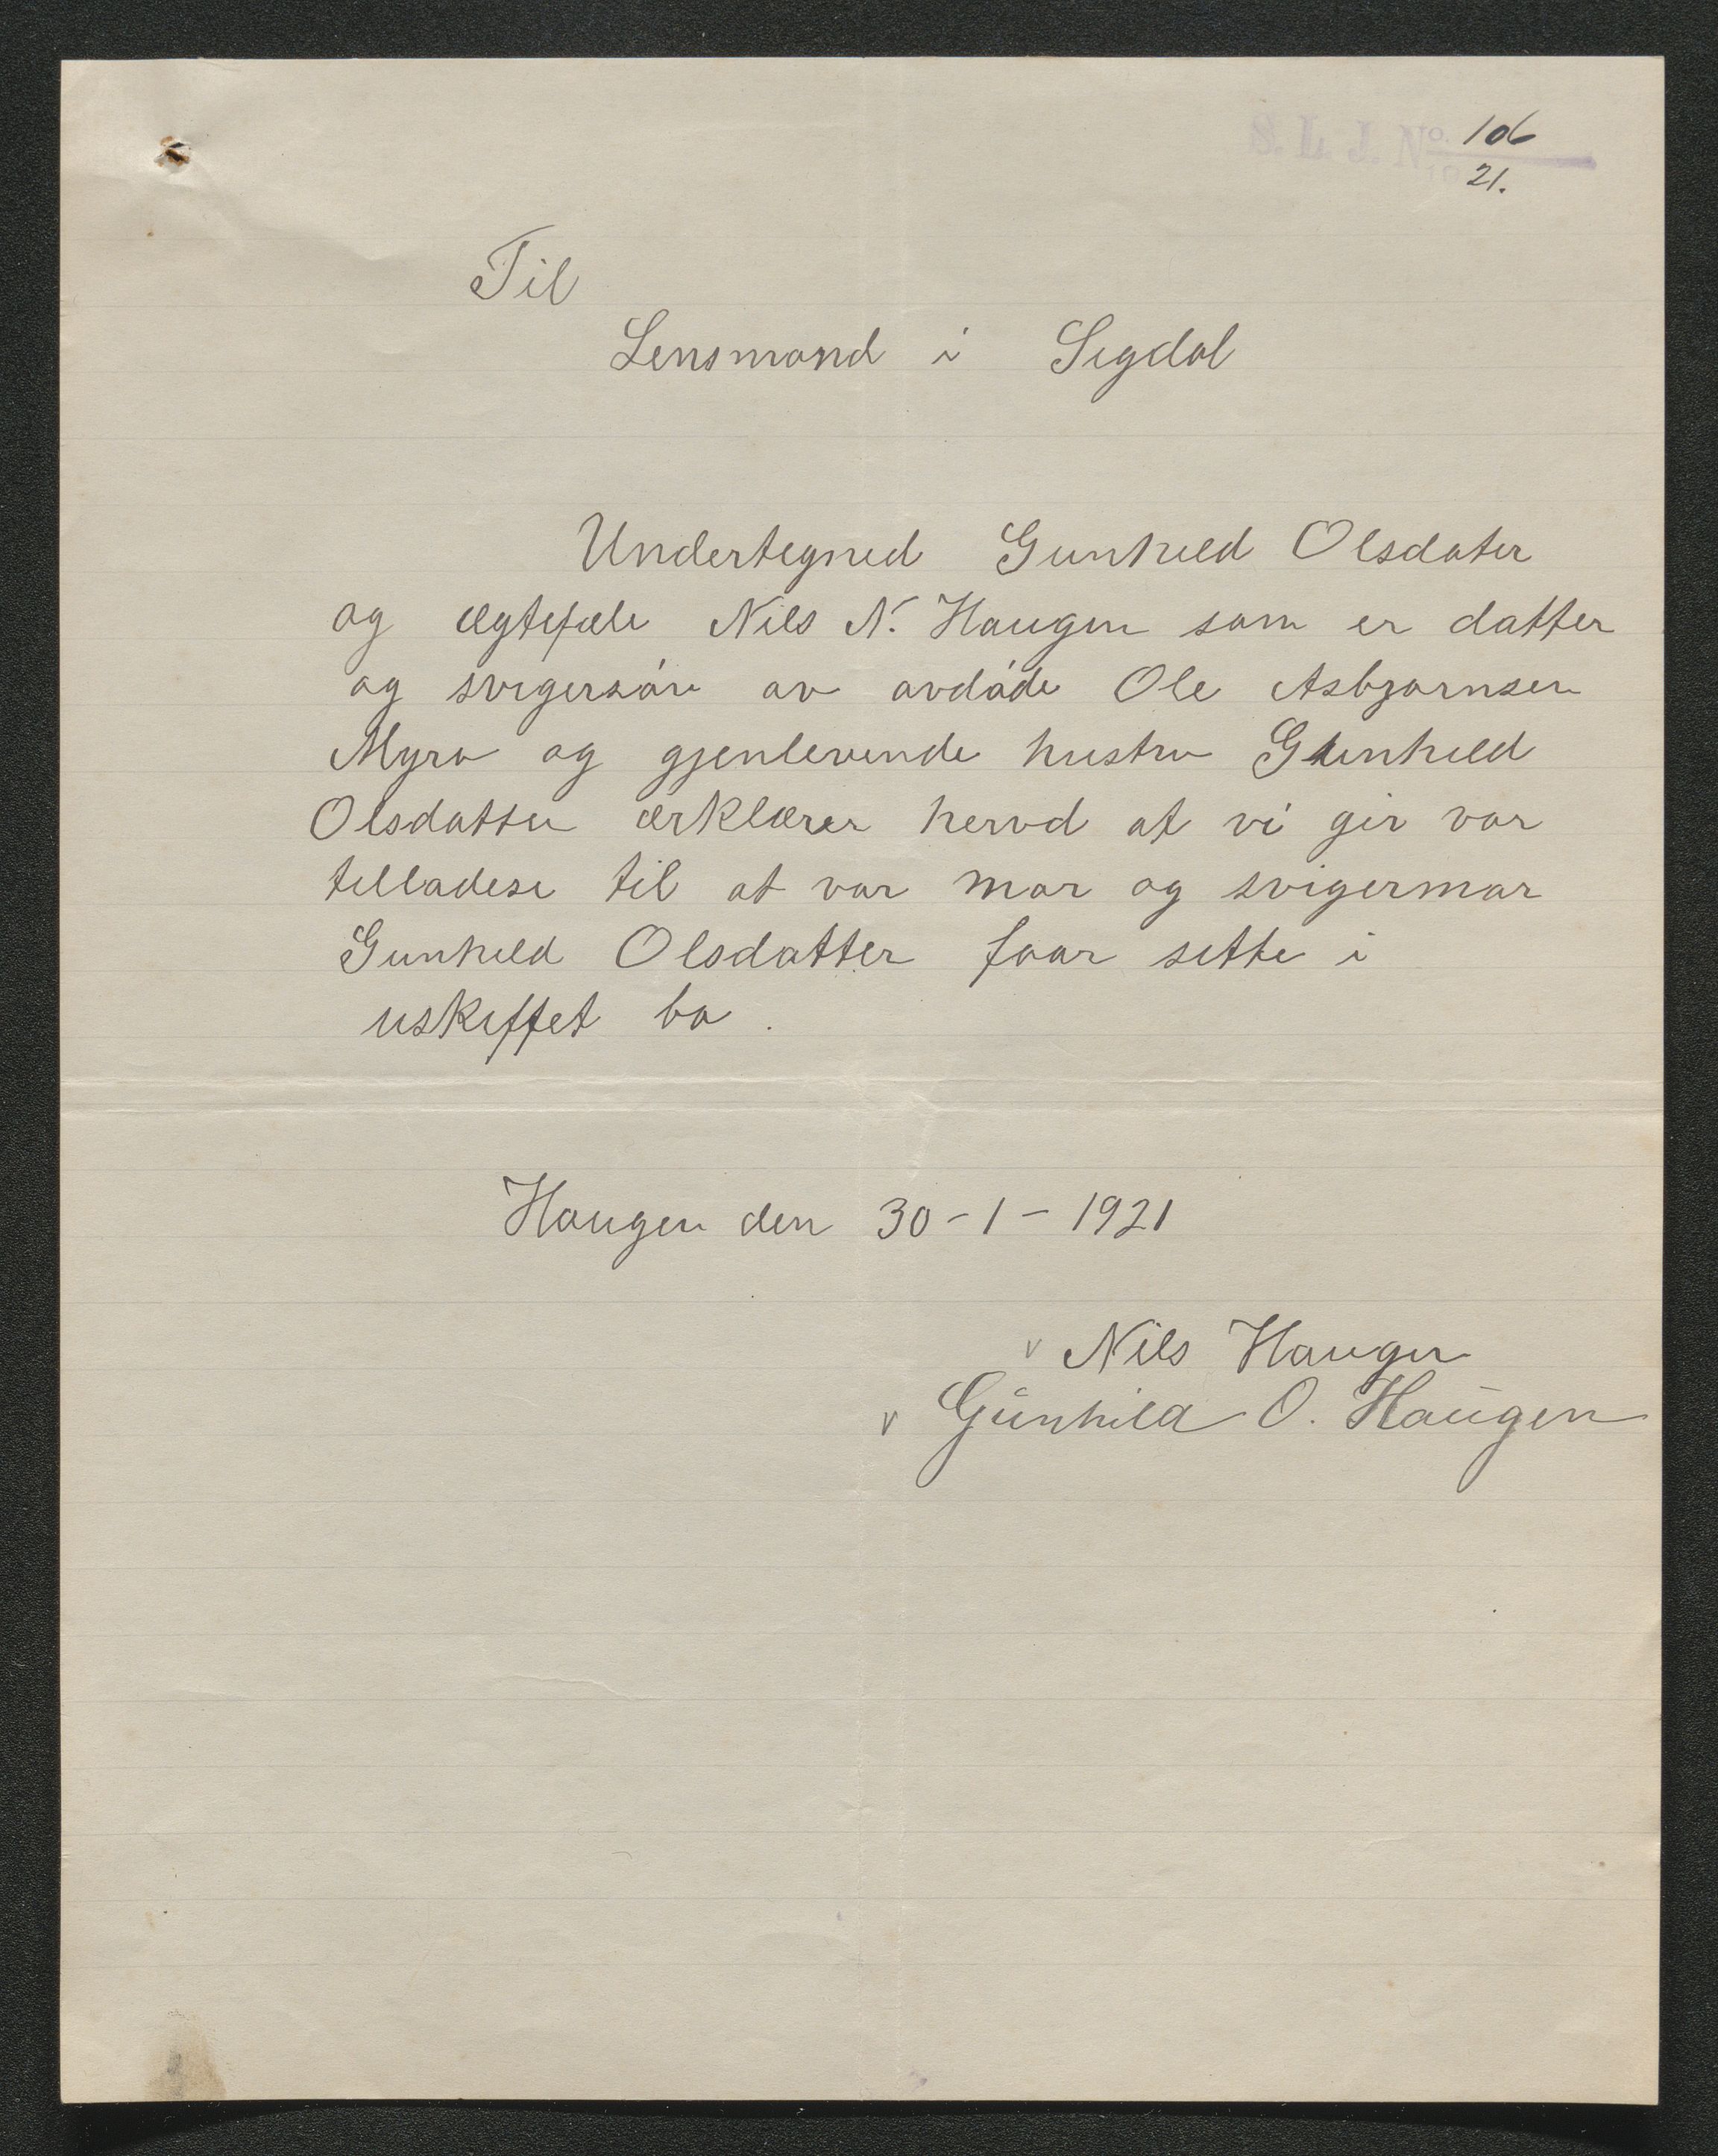 S. L. J. No. 106
21.
Til
Lensmand i Sigdal
Undertegned Gunhild Olsdater
og ægtefæle Nils N. Haugen som er datter
og svigersón av avdóde Ole Asbjornsen
Myra og gjenlevende hustru Gunhild
Olsdatter ærklærer hervd at vi gir vor
tilladese til at vor mor og svigermor
Gunhild Olsdatter faar sitte i
uskiftet bo.
Haugen den 30-1-1921
v Nils Haugen
v Gunhild O. Haugen